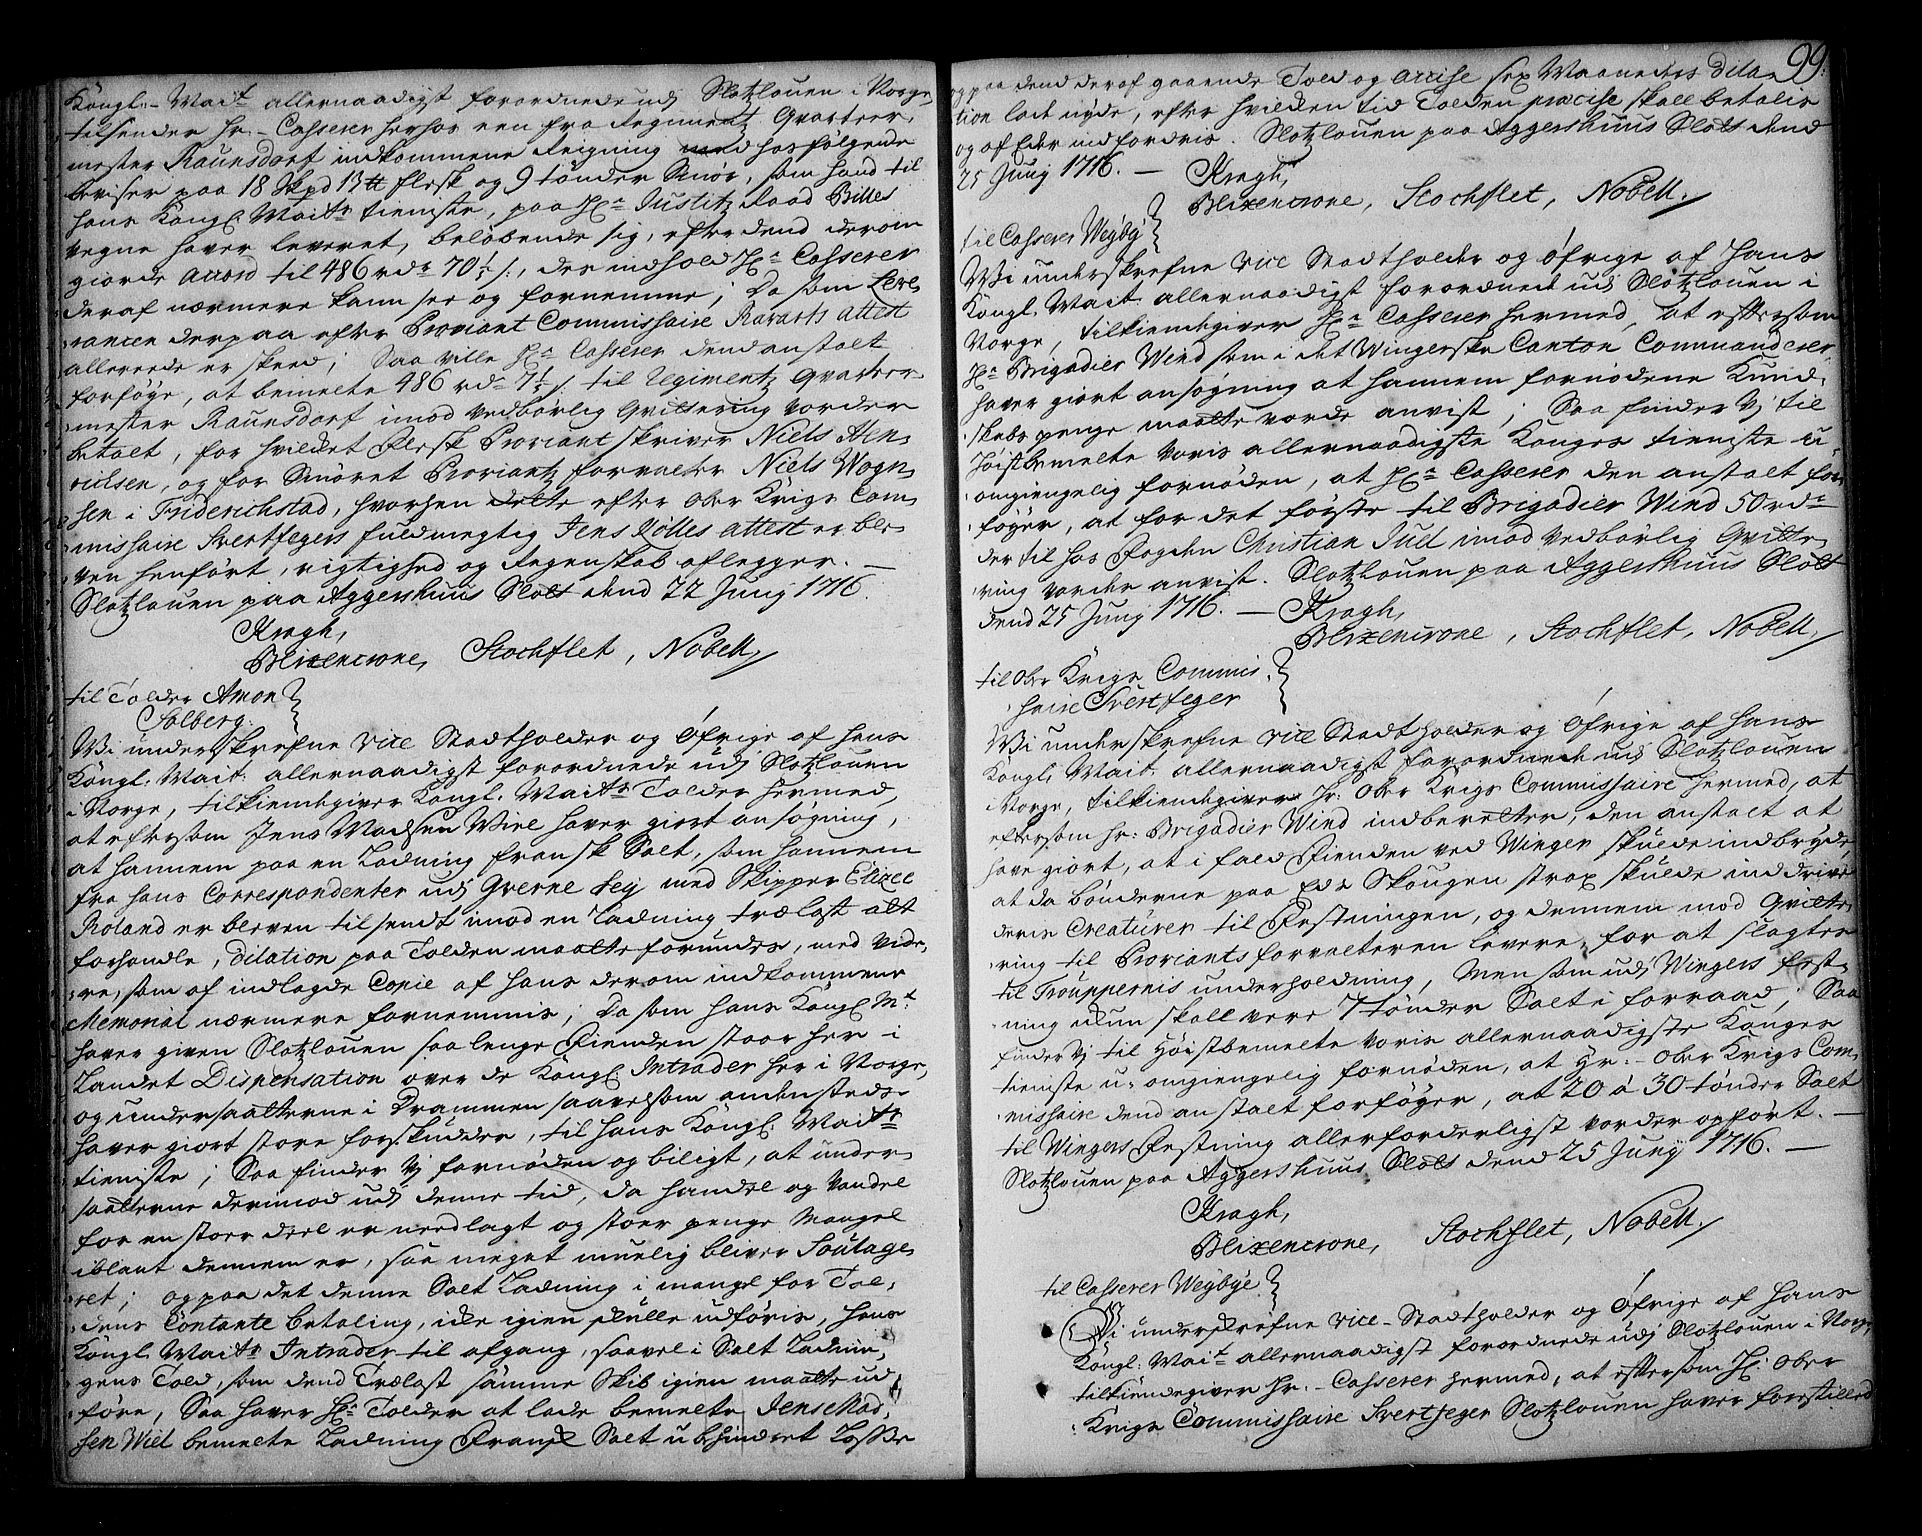 Kongl:- Maÿt allernaadigst forordnede udj Slotzlouen i Norge,
tilsender Hr:- Casserer herhos een fra Regimentz Qvarteer-
mester Raunsdorf indkommene Reigning med hosfölgende
beviser paa 18 Skpd 13 ℔ flesk og 9 tönder Smör, som hand til
hans Kongl Maÿts tieniste, paa Hr Justitz Raad Billes
vegne haver leveret, belöbende sig, efter dend derom
giorde accord til 486 rdr 70½ s:, des indhold Hr Casserer
deraf nærmere kann see og fornemme; Da som Leve-
rancen derpaa efter Proviant Commissaire Ravarts attest
allereede er skeed; Saa ville Hr Casserer dend anstalt
forföge, at bemelte 486 rdr 7½ s. til Regimentz Qvarteer-
mester Raunsdorf imod vedbörlig Qvittering vorder
betalt, for hvilcket flesk Proviantskriver Niels Hen-
richsen, og for Smöret Proviantz forvalter Niels Wogn-
sen i Friderichstad, hvorhen dette efter Ober Krigs Com-
missaire Svertfegers fuldmegtig Jens Kolles attest er ble-
ven henfört, rigtighed og Regenskab aflegger. —
Slotzlouen paa Aggershuus Slott dend 22 Junÿ 1716.
Kragh,
Blixencrone, Stochflet, Nobell./
til Tolder Amon
Solberg.
Wi underskrefne Vice Stadtholder og Öfrige af hans
Kongl. Maÿt: allernaadigst forordnede udj Slotzlouen
i Norge, tilkiendegiver Kongl. Maÿts Tolder hermed,
at eftersom Jens Madsen Wiel haver giort ansögning,
at hannem paa en Ladning fransk Salt, som hannem
fra hans Correspondenter udj Gverne seÿ med Skipper Elizee
Roland er bleven tilsendt imod en Ladning trælast att
forhandle, dilation paa Tolden maatte forundes, med vide-
re, som af indlagde Copie af hans derom indkommene
Memorial nærmere fornemmis; Da som hans Kongl Mt:
haver given Slotzlouen saa lenge Fienden staar her i
Landet Dispensation over de Kongl Intrader her i Norge,
og undersaatterne i Drammen saavelsom andensteds
haver giort store forskudder, til hans Kongl. Maÿts
tieniste; Saa finder vj fornöden og biligt, at under-
saatterne derimod udj denne tid, da handel og vandel
for en stoer deel er nedlagt og stoer penge Mangel
iblant dennem er, saa meget muelig bliver Soulage-
ret; og paa det denne Salt Ladning i mangel for Tol-
dens Contante betaling, icke igien skulle udföris, hans
Kongl Maÿts Intrader til afgang, saavel i Salt Ladnin-
gens Told, som dend Trælast samme Skib igien maatte ud-
före, Saa haver Hr Tolder at lade bemelte Jens Mad-
sen Wiel bemelte Ladning Fransk Salt ubehindret Losse
99.
og paa dend deraf gaaende Told og accise sex Maaneders dila-
tion lade nyde, efter hvilcken tid Tolden præcise skall betalis
og af Eder indfordris. Slotzlouen paa Aggershuus Slott dend
25 Junÿ 1716. — Kragh,
Blixencrone, Stochflet, Nobell./
til Casserer Weÿbÿ
Wi underskrefne Vice Stadtholder og Öfrige af Hans
Kongl. Maÿt. allernaadigst forordnede udj Slotzlouen i
Norge, tilkiendegiver Hr Casserer hermed, at eftersom
Hr Brigadier Wind som i det Wingerske Canton Commanderer,
haver giort ansögning at hannem fornödene Kund-
skabs penge maatte vorde anvist; Saa finder vj til
Höistbemelte voris allernaadigste Konges tieniste u-
omgiengelig fornöden, at Hr Casserer den anstalt for-
föger, at for det förste til Brigadier Wind 50 rdr
dertil hos Fogden Christian Juel imod vedbörlig Qvitte-
ring vorder anvist. Slotzlouen paa Aggershuus Slott
dend 25 Junÿ 1716. — Kragh,
Blixencrone, Stochflet, Nobell./
til Ober Krigs Commis-
saire Svertfeger
Wi underskrefne Vice Stadtholder og Öfrige af Hans
Kongl. Maÿt. allernaadigst forordnede udj Slotzlouen
i Norge, tilkiendegiver Hr: Ober Krigs Commissaire hermed, at
eftersom Hr: Brigadier Wind indberetter, den anstalt at
have giort, at i fald Fienden ved Winger skulde indbryde,
at da bönderne paa Eds Skougen strax skulde inddrive
deris Creaturer til Festningen, og dennem mod Qvitte-
ring til Proviantsforvalteren levere, for at slagtes
til Trouppernis underholdning, Men som udj Wingers fest-
ning ickun skall vere 7 tönder Salt i forraad; Saa
finder vj til Höistbemelte voris allernaadigste Konges
tieniste u-omgiengelig fornöden, at Hr:- Ober Krigs Com-
missaire dend anstalt forföger, at 20 á 30 tönder Salt
til Wingers Festning allerforderligst vorder opfört. —
Slotzlouen paa Aggershuus Slott dend 25 Junÿ 1716. —
Kragh,
Blixencrone, Stochflet, Nobell./
til Casserer Weÿbÿe
Wi underskrefne Vice-Stadtholder og Öfrige af Hans
Kongl: Maÿt allernaadigst forordnede udj Slotzlouen i Norge,
tilkiendegiver Hr:- Casserer hermed, at eftersom Hr: Ober
Krigs Commissaire Svertfeger Slotzlouen haver forestilled